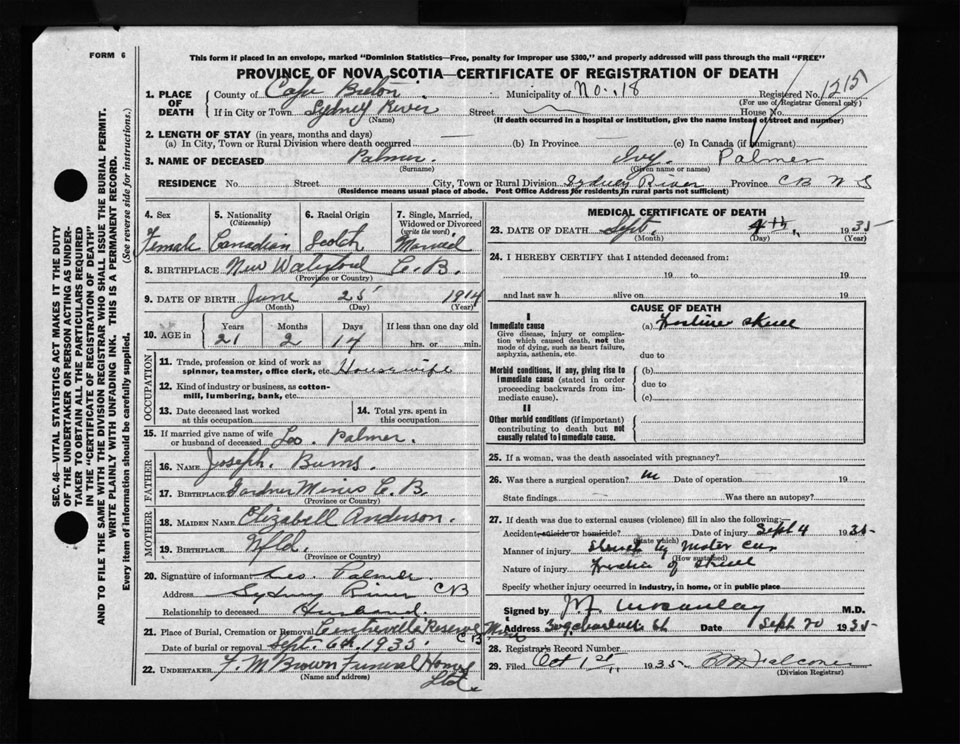 FORM 6
This form if placed in an envelope, marked "Dominion Statistics—Free, penalty for improper use $300," and properly addressed will pass through the mail "FREE"
PROVINCE OF NOVA SCOTIA—CERTIFICATE OF REGISTRATION OF DEATH
1. PLACE OF DEATH County of Cape Breton Municipality of No. 18 Registered No. 1215
(For use of Registrar General only)
If in City or Town Sydney River Street House No.
(Name) (If death occurred in a hospital or institution, give the name instead of street and number)
2. LENGTH OF STAY (in years, months and days)
(a) In City, Town or Rural Division where death occurred (b) In Province (c) In Canada (if immigrant)
3. NAME OF DECEASED Palmer. Ivy. Palmer
(Surname) (Given name or names)
RESIDENCE No. Street City, Town or Rural Division Sydney River Province C B N S
(Residence means usual place of abode. Post Office Address for residents in rural parts not sufficient)
4. Sex Female
5. Nationality (Citizenship) Canadian
6. Racial Origin Scotch
7. Single, Married, Widowed or Divorced (write the word) Married
8. BIRTHPLACE New Waterford C. B.
(Province or Country)
9. DATE OF BIRTH June 25 1914
(Month) (Day) (Year)
10. AGE in Years Months Days If less than one day old
21 2 14 hrs. or min.
OCCUPATION
11. Trade, profession or kind of work as spinner, teamster, office clerk, etc. Housewife
12. Kind of industry or business, as cotton-mill, lumbering, bank, etc.
13. Date deceased last worked at this occupation
14. Total yrs. spent in this occupation
15. If married give name of wife or husband of deceased Leo. Palmer.
FATHER
16. NAME Joseph. Burns.
17. BIRTHPLACE Gardner Mines C. B.
(Province or Country)
MOTHER
18. MAIDEN NAME Elizabeth Anderson.
19. BIRTHPLACE Nfld.
(Province or Country)
20. Signature of informant Leo. Palmer
Address Sydney River C B
Relationship to deceased Husband.
21. Place of Burial, Cremation or Removal Centreville Reserve Mines C B
Date of burial or removal Sept. 6th. 1935
22. UNDERTAKER F. M Brown Funeral Home Ltd.
(Name and address)
MEDICAL CERTIFICATE OF DEATH
23. DATE OF DEATH Sept. 4th, 1935
(Month) (Day) (Year)
24. I HEREBY CERTIFY that I attended deceased from:
19 to 19
and last saw h alive on 19
CAUSE OF DEATH
I
Immediate cause (a) skull
Give disease, injury or complication which caused death, not the mode of dying, such as heart failure, asphyxia, asthenia, etc. due to
Morbid conditions, if any, giving rise to immediate cause (stated in order proceeding backwards from immediate cause). (b) due to (c)
II
Other morbid conditions (if important) contributing to death but not causally related to immediate cause.
25. If a woman, was the death associated with pregnancy?
26. Was there a surgical operation? Date of operation 19
State findings Was there an autopsy?
27. If death was due to external causes (violence) fill in also the following:
Accident, suicide or homicide? Date of injury Sept 4 1935
(State which)
Manner of injury Struck by Motor Car
(How sustained)
Nature of injury of skull
Specify whether injury occurred in industry, in home, or in public place
Signed by M.D.
Address Date Sept 20 1935
28. Registrar's Record Number
29. Filed Oct 1st 1935
(Division Registrar)
SEC. 46—VITAL STATISTICS ACT MAKES IT THE DUTY
OF THE UNDERTAKER OR PERSON ACTING AS UNDER-
TAKER TO OBTAIN ALL THE PARTICULARS REQUIRED
IN THE "CERTIFICATE OF REGISTRATION OF DEATH"
AND TO FILE THE SAME WITH THE DIVISION REGISTRAR WHO SHALL ISSUE THE BURIAL PERMIT.
WRITE PLAINLY WITH UNFADING INK. THIS IS A PERMANENT RECORD.
Every item of information should be carefully supplied. (See reverse side for instructions.)